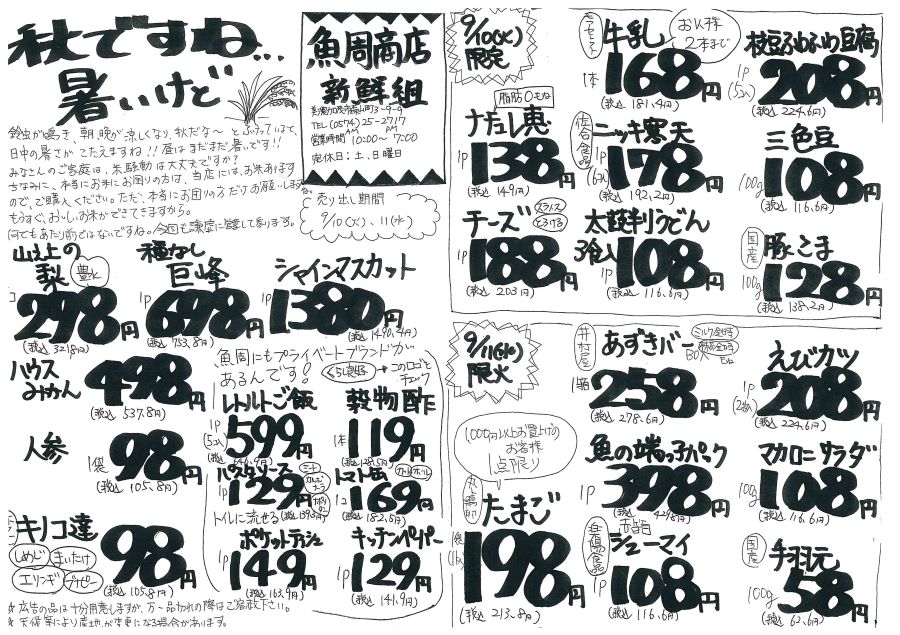 秋ですね…
暑いけど
鈴虫が鳴き、朝、晩が涼しくなり、秋だな～とふけっていて、
日中の暑さが、こたえますね!!昼はまだまだ暑いです!!
みなさんのご家庭は、米騒動は大丈夫ですか?
ちなみに、本当にお米にお困りの方は、当店には、お米あります
ので、ご購入ください。ただ、本当にお困りの方だけお願いします。
もうすぐ、おいしいお米ができてきますから。
何でもあたり前ではないですね。今回も謙虚に営業して参ります。
魚周商店
新鮮組
TEL(0574)25-2717
営業時間 AM 10:00～PM 7:00
定休日:土、日曜日
売り出し期間
9/10(火)、11(水)
山之上の
梨
豊水
1コ
298円
(税込 321.8円)
種なし
巨峰
1P
698円
(税込 753.8円)
シャインマスカット
1P
1380円
(税込 1490.4円)
ハウス
みかん
498円
(税込 537.8円)
人参
1袋
98円
(税込 105.8円)
キノコ達
しめじ
まいたけ
エリンギ
98円
(税込 105.8円)
※広告の品は十分用意しますが、万一品切れの際はご容赦下さい。
※天候等により産地が変更になる場合があります。
魚周にもプライベートブランドが
あるんです!
くらし良好
←このロゴを
チェック
レトルトご飯
1P
(5コ入)
599円
(税込 646.9円)
穀物酢
1本
119円
(税込 128.5円)
パスタソース
1P
129円
(税込 139.3円)
ミート
カルボナーラ
トマト缶
カット
ホール
1コ
169円
(税込 182.5円)
トイレに流せる
ポケットティッシュ
1P
149円
(税込 160.9円)
キッチンペーパー
1P
129円
(税込 141.9円)
9/10(火)
限定
牛乳
お1人様
2本まで
1本
168円
(税込 181.4円)
枝豆ふわふわ豆腐
1P
(5コ入)
208円
(税込 224.6円)
脂肪0もね
ナチュレ恵
1P
138円
(税込 149円)
佐合食品
ニッキ寒天
1P
(6コ入)
178円
(税込 192.2円)
三色豆
100g
108円
(税込 116.6円)
チーズ
スライス
とろける
1P
188円
(税込 203円)
太鼓判うどん
3食入
1P
108円
(税込 116.6円)
国産
豚こま
100g
128円
(税込 138.2円)
9/11(水)
限定
井村屋
あずきバー
BOX
ミルク金時
もね
1箱
258円
(税込 278.6円)
えびカツ
1P
(2枚入)
208円
(税込 224.6円)
1000円以上お買上げの
お客様
1点限り
たまご
198円
(税込 213.8円)
魚の端っ子パック
1P
398円
(税込 429.8円)
マカロニサラダ
100g
108円
(税込 116.6円)
シューマイ
1P
108円
(税込 116.6円)
国産
手羽元
100g
58円
(税込 62.6円)